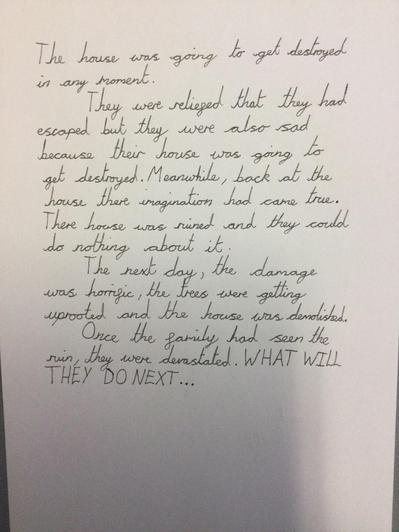 The house was going to get destroyed
in any moment.
They were relieved that they had
escaped but they were also sad
because their house was going to
get destroyed. Meanwhile, back at the
house there imagination had came true.
There house was ruined and they could
do nothing about it.
The next day, the damage
was horrific, the trees were getting
uprooted and the house was demolished.
Once the family had seen the
ruin, they were devastated. WHAT WILL
THEY DO NEXT...